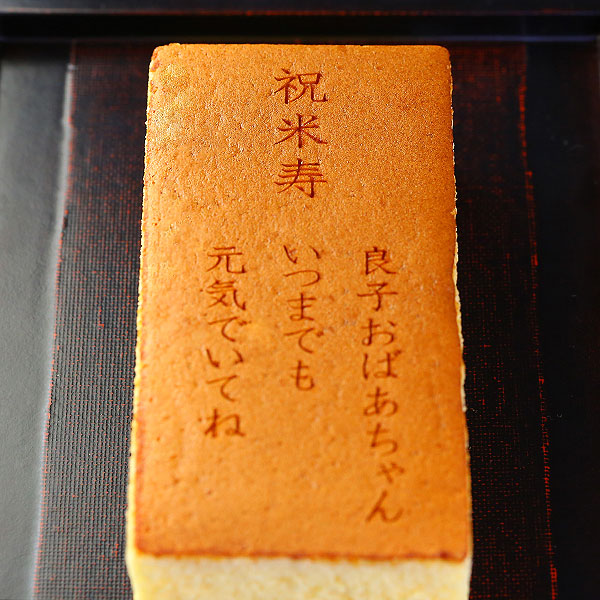 祝米寿
良子おばあちゃん
いつまでも
元気でいてね